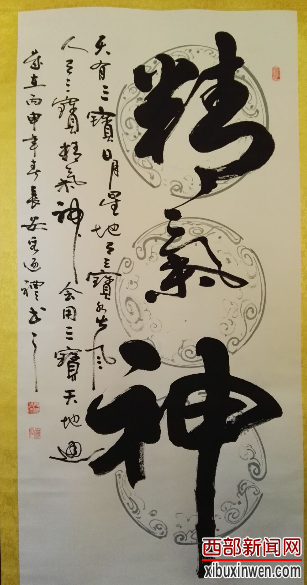 精氣神
天有三寶日月星地有三寶水火風
人有三寶精氣神会用三寶天地通
歲在丙申年春長安
西部新闻网
xibuxinwen.com